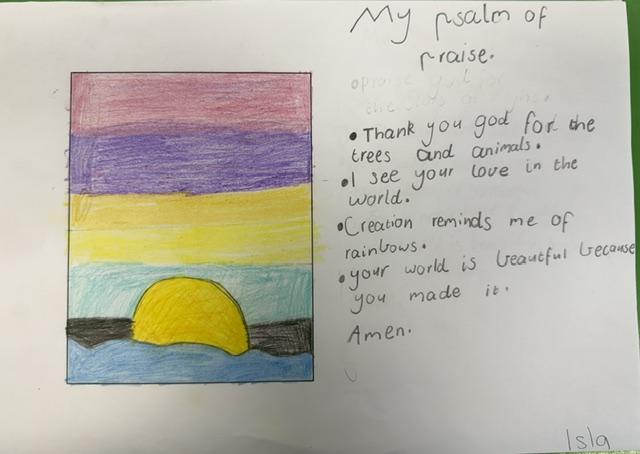 My psalm of
praise.
praise god for
the
• Thank you god for the
trees and animals.
• I see your love in the
world.
• Creation reminds me of
rainbows.
• your world is beautful because
you made it.
Amen.
Isla